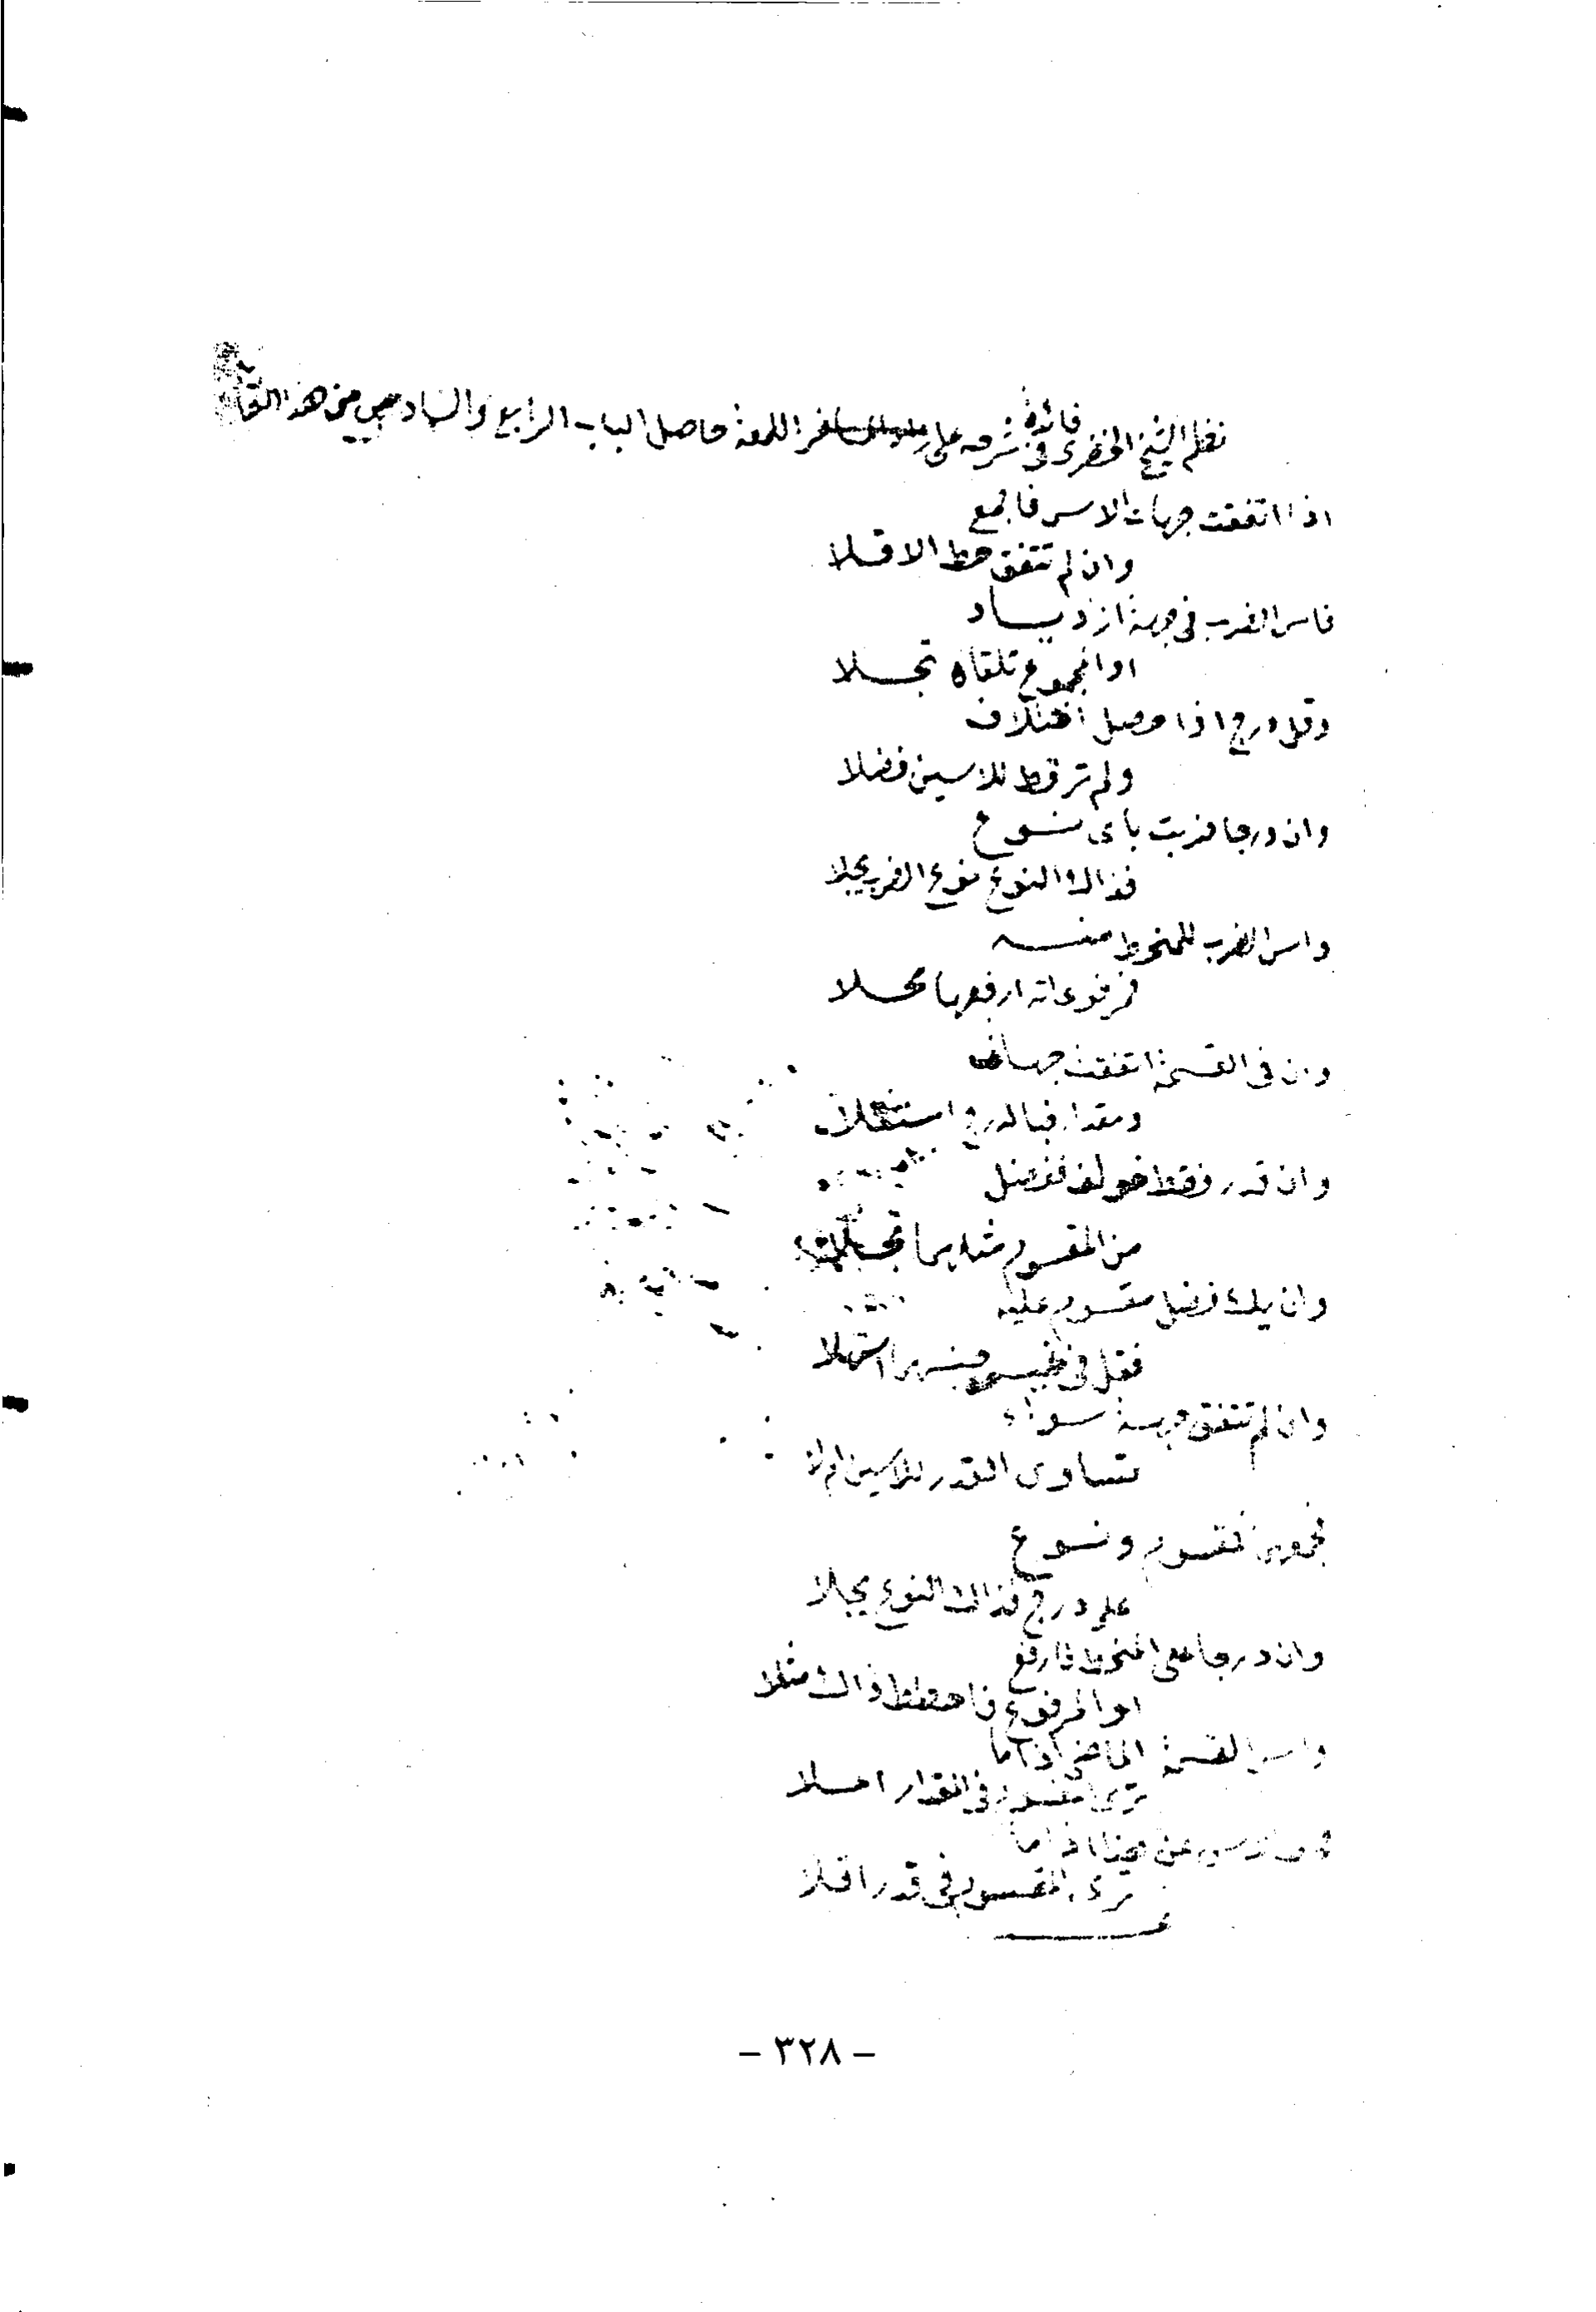 فائدة
نظم الشيخ الخضرى فى شرحه على اللمعة حاصل الباب الرابع والسادس من هذا
اذا اتفقت جهات الاس فاجمع
وان لم تتفق حط الاقلا
فاس الضرب فى جهة ازدياد
او المجموع تلقاه تجلا
وقل درج اذا حصل اختلاف
ولم تر قط للاسين فضلا
وان درجا ضربت باى نوع
فذاك النوع نوع الضرب يجلا
واس الضرب للمنحط منه
مرفوعاته ارفعها محلا
وان فى القسمة اتفقت جهات
ومقدار فبالدرج
وان قدر فقط خولف ففضل
من المقسوم مثلهما
وان يك فضل مقسوم عليه
فقل فى جنسها
وان لم تتفق جهة سواء
تساوى القدر للاسين ام لا
مقسوم ونوع
على درج فذاك النوع يجلا
وان درجا على المنحط فارفع
او المرفوع فاحطط ذاك مثلا
واس القسمة الماضى اذا ما
ترى المقسوم فى المقدار اعلا
اذا ما
ترى المقسوم فى قدر اقلا
- ٣٢٨ -